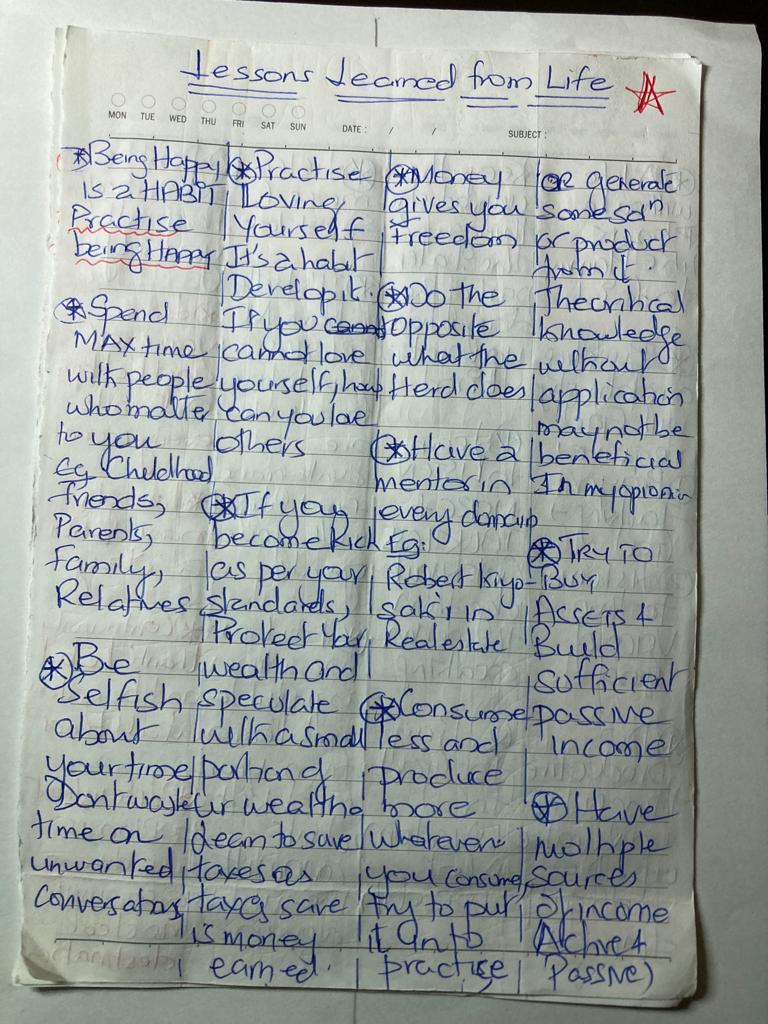 Lessons Learned from Life
MON TUE WED THU FRI SAT SUN
DATE : / / SUBJECT :
Being Happy
is a HABIT
Practise
being HAPPY
Spend
MAX time
with people
who matter
to you
Eg Childhood
friends,
Parents,
family,
Relatives
Be
Selfish
about
your time
Dont waste
time on
unwanted
Conversations
Practise
Loving
Yourself
It's a habit
Develop it.
If you
cannot love
yourself, how
can you love
others
If you
become Rich
as per your
standards,
Protect Your
wealth and
speculate
with a small
portion of
ur wealth
Learn to save
taxes as
taxes save
is money
earned.
Money
gives you
freedom
Do the
opposite
what the
Herd does
Have a
mentor in
every domain
Eg:
Robert Kiyo-
saki in
Real estate
Consume
less and
produce
more
Whatever
you consume,
try to put
it into
practise
or generate
some soln
or product
from it.
Theoritical
knowledge
without
application
may not be
beneficial
In my opionin
TRY TO
BUY
ASSETS &
Build
sufficient
passive
income
Have
multiple
sources
of income
Active &
Passive)